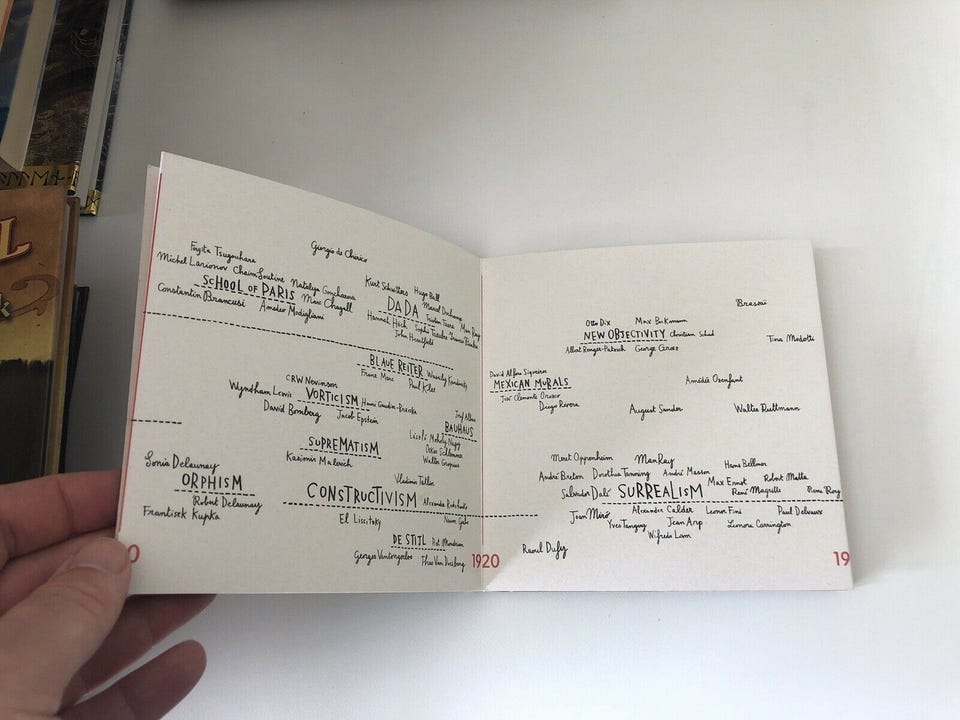 L
k
Giorgio de Chirico
Foujita Tsuguharu
Michel Larionov Chaim Soutine Nataleya Goncharova
SCHOOL OF PARIS Marc Chagall
Constantin Brancusi Amedeo Modigliani
Kurt Schwitters Hugo Ball
DADA Marcel Duchamp
Tristan Tzara Man Ray
Hannah Höch Sophie Taeuber Francis Picabia
John Heartfield
BLAUE REITER Wassily Kandinsky
Franz Marc Paul Klee
CRW Nevinson
Wyndham Lewis VORTICISM Henri Gaudier-Brzeska
David Bomberg Jacob Epstein
Josef Albers
BAUHAUS
László Moholy Nagy
Oskar Schlemmer
Walter Gropius
SUPREMATISM
Kazimir Malevich
Sonia Delaunay
ORPHISM
Robert Delaunay
Frantisek Kupka
Vladimir Tatlin
CONSTRUCTIVISM Alexander Rodchenko
El Lissitzky Naum Gabo
DE STIJL Piet Mondrian
Georges Vantongerloo Theo Van Doesburg
0
1920
Brassai
Otto Dix Max Beckmann
NEW OBJECTIVITY Christian Schad
Albert Renger-Patzsch George Grosz
Tina Modotti
David Alfaro Siqueiros
MEXICAN MURALS
José Clemente Orozco
Diego Rivera
Amédée Ozenfant
August Sander Walter Ruttmann
Meret Oppenheim Man Ray Hans Bellmer
André Breton Dorothea Tanning André Masson Max Ernst Robert Matta
Salvador Dalí SURREALISM René Magritte Pierre Roy
Joan Miró Alexander Calder Leonor Fini Paul Delvaux
Yves Tanguy Jean Arp Leonora Carrington
Wifredo Lam
Raoul Dufy
19